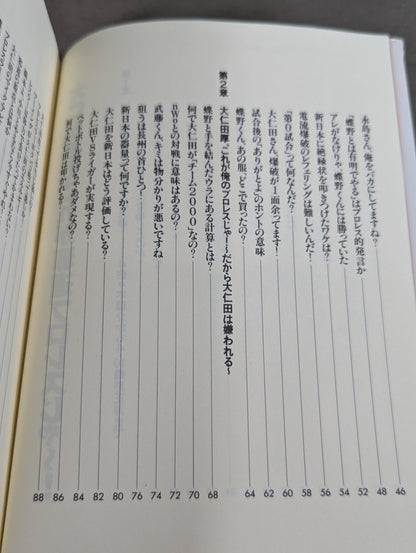 永島さん、俺をバカにしてますね? 46
「蝶野とは有明でやる」はプロレス的発言か 48
アレがなけりゃ、蝶野くんには勝っていた 52
新日本に絶縁状を叩きつけたワケは? 54
電流爆破のレフェリングは難しいんだ! 56
「第0試合」って何なんだ? 58
大仁田さん、爆破が1面余ってます! 60
試合後の「ありがとよ」のホントの意味 62
蝶野くん、あの服、どこで買ったの? 64
第2章 大仁田厚、“これが俺のプロレスじゃー!〜だから大仁田は嫌われる〜
蝶野と手を結んだウラにある計算とは? 68
何で大仁田が、「チーム2000」なの? 70
nWoとの対戦に意味はあるの? 72
武藤くん、キミは物分かりが悪いですね 74
狙うは長州の首ひとつ! 76
新日本の器量って何ですか? 80
大仁田を新日本はどう評価している? 82
大仁田VSライガーが実現する? 84
ペットボトル投げちゃあダメなの? 86
何で大仁田は叩かれる? 88